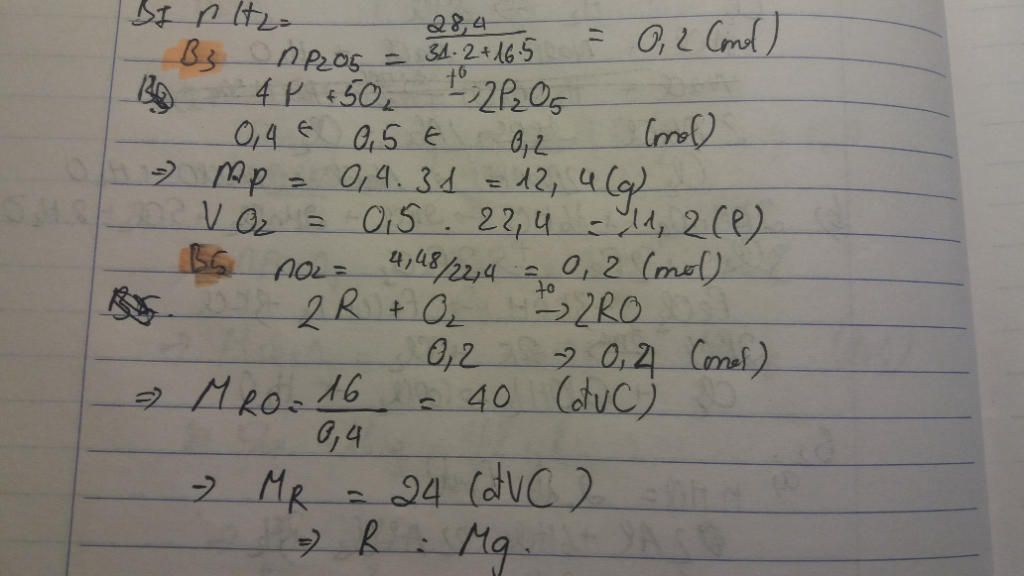 B1 nH2=
B3 nP2O5 = 28,4/31.2+16.5 = 0,2 (mol)
4P + 5O2 t°→ 2P2O5
0,4 ← 0,5 ← 0,2 (mol)
⇒ mP = 0,4. 31 = 12,4 (g)
VO2 = 0,5 . 22,4 = 11,2 (l)
B5 nO2 = 4,48/22,4 = 0,2 (mol)
2R + O2 t°→ 2RO
0,2 → 0,4 (mol)
⇒ MRO = 16/0,4 = 40 (đVC)
→ MR = 24 (đVC)
⇒ R : Mg.